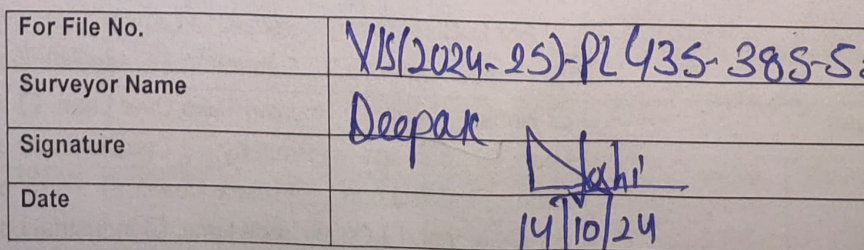 For File No. VIS(2024-25)-PL435-385-5
Surveyor Name Deepak
Signature
Date 14/10/24